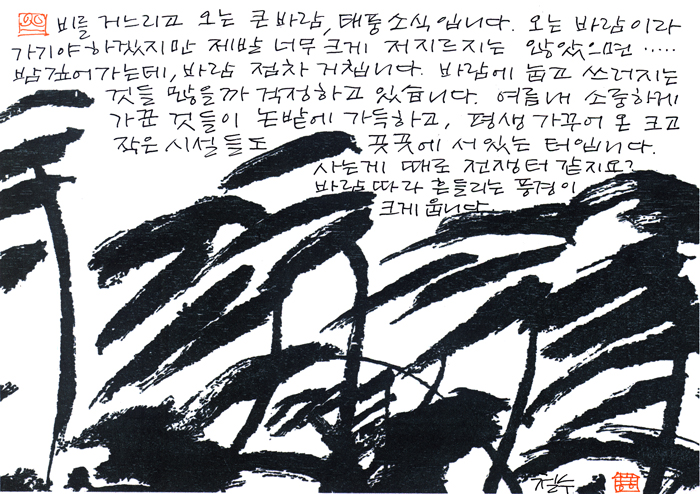 비를 거느리고 오는 큰 바람, 태풍 소식입니다. 오는 바람이라
가기야 하겠지만 제발 너무 크게 저지르지는 않았으면 ·····
밤 깊어가는데, 바람 점차 거칩니다. 바람에 눕고 쓰러지는
것들 많을까 걱정하고 있습니다. 여름내 소중하게
가꾼 것들이 논밭에 가득하고, 평생 가꾸어 온 크고
작은 시설들도 곳곳에 서있는 터입니다.
사는게 때로 전쟁터 같지요?
바람따라 흔들리는 풍경이
크게 웁니다.
철수